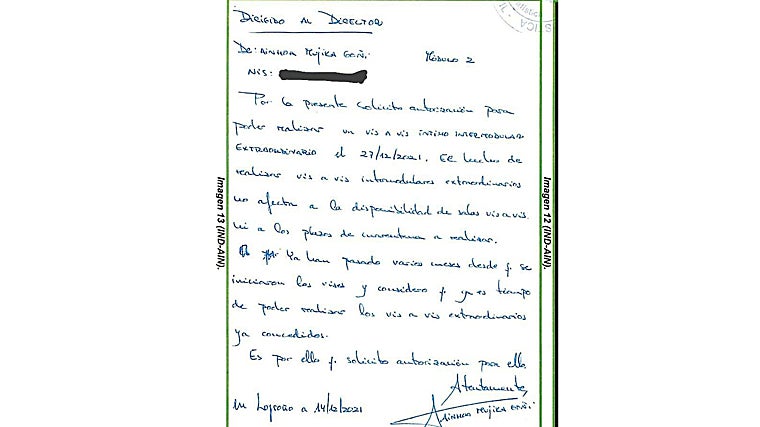 DIRIGIDO AL DIRECTOR
DE: AINHOA MUJIKA GOÑI MÓDULO 2
NIS:
Por la presente solicito autorización para
poder realizar un vis a vis INTIMO INTERMODULAR
EXTRAORDINARIO el 27/12/2021. El hecho de
realizar vis a vis intermodulares extraordinarios
no afecta a la disponibilidad de salas vis a vis
ni a los plazos de cuarentena a realizar.
Ya han pasado varios meses desde q. se
iniciaron los vises y considero q. ya es tiempo
de poder realizar los vis a vis extraordinarios
ya concedidos.
Es por ello q. solicito autorización para ello
Atentamente,
En Logroño a 14/12/2021
AINHOA MUJIKA GOÑI
Imagen 13 (IND-AIN).
Imagen 12 (IND-AIN).